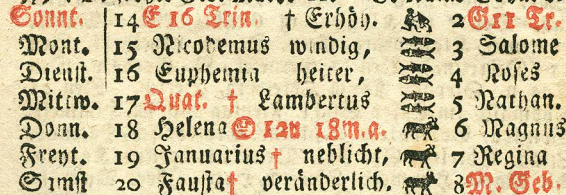 Sonnt. 14 E 16 Trin. † Erhöh. 2 G 11 Tr.
Mont. 15 Nicodemus windig, 3 Salome
Dienst. 16 Euphemia heiter, 4 Moses
Mittw. 17 Quat. † Lambertus 5 Nathan.
Donn. 18 Helena 12 u 18 m. a. 6 Magnus
Freyt. 19 Januarius † neblicht, 7 Regina
Samst 20 Fausta † veränderlich. 8 M. Geb.